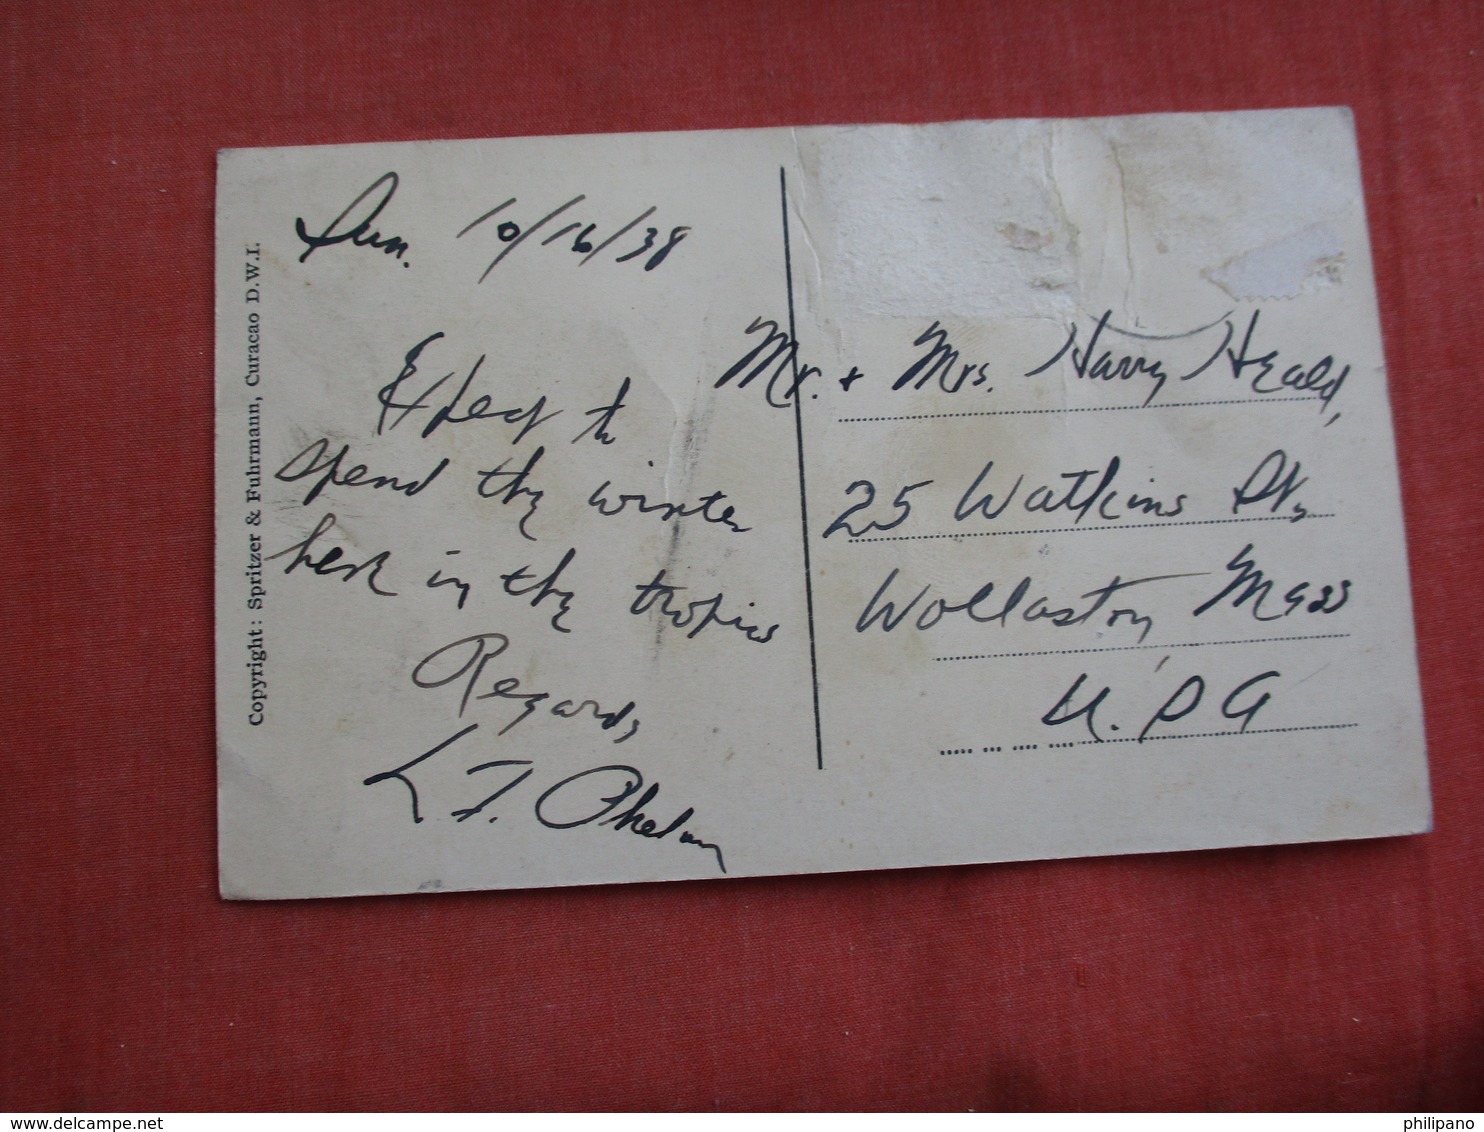 Copyright: Spritzer & Fuhrmann, Curacao D.W.I.
Sun. 10/16/38
Expect to
spend the winter
here in the tropics
Regards,
L.F. Phelan
Mr. + Mrs. Harry Heald,
25 Watkins St,
Wollaston, Mass
U.S.A
www.delcampe.net
philipano